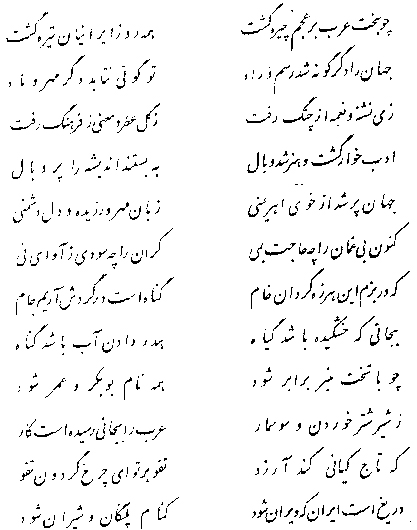 چو بخت عرب بر عجم چیره گشت همه روز ایرانیان تیره گشت
جهان را دگرگونه شد رسم و راه تو گوئی نتابد دگر مهر و ماه
ز می نشئه و نغمه از چنگ رفت ز گل عطر و معنی ز فرهنگ رفت
ادب خوار گشت و هنر شد وبال به بستند اندیشه را پر و بال
جهان پر شد از خوی اهریمنی زبان مهر ورزیده و دل دشمنی
کنون بی غمان را چه حاجت بمی کران را چه سودی ز آوای نی
که در بزم این هرزه گردان خام گناه است در گردش آریم جام
بجائی که خشکیده باشد گیاه هدر دادن آب باشد گناه
چو با تخت منبر برابر شود همه نام بوبکر و عمر شود
ز شیر شتر خوردن و سوسمار عرب را بجائی رسیده است کار
که تاج کیانی کند آرزو تفو بر تو ای چرخ گردون تفو
دریغ است ایران که ویران شود کنام پلنگان و شیران شود